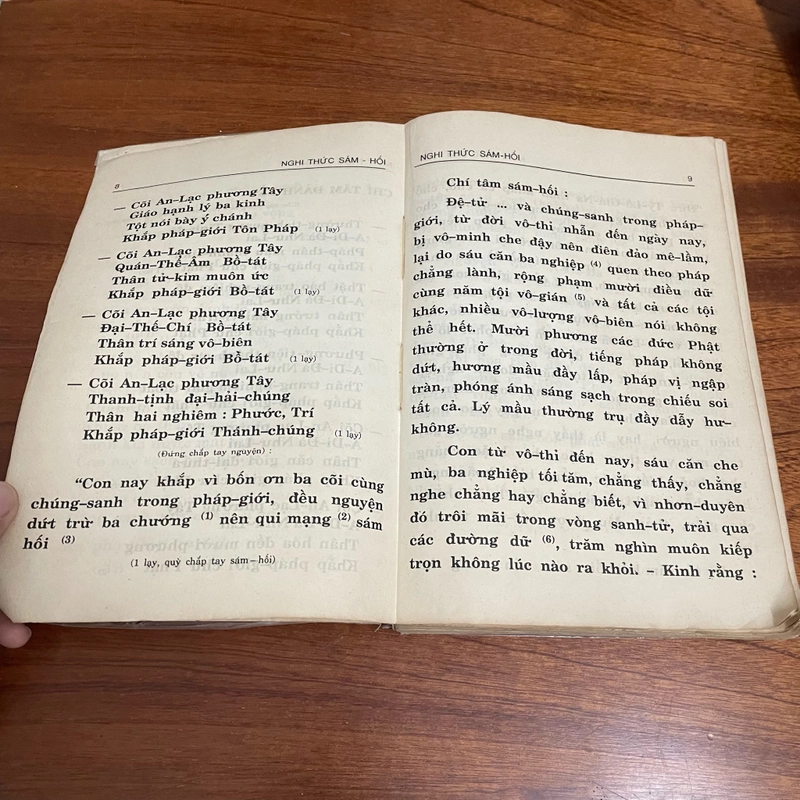 8
NGHI THỨC SÁM - HỐI
— Cõi An-Lạc phương Tây
Giáo hạnh lý ba kinh
Tột nói bày ý chánh
Khắp pháp-giới Tôn Pháp (1 lạy)
— Cõi An-Lạc phương Tây
Quán-Thế-Âm Bồ-tát
Thân tử-kim muôn ức
Khắp pháp-giới Bồ-tát (1 lạy)
— Cõi An-Lạc phương Tây
Đại-Thế-Chí Bồ-tát
Thân trí sáng vô-biên
Khắp pháp-giới Bồ-tát (1 lạy)
— Cõi An-Lạc phương Tây
Thanh-tịnh đại-hải-chúng
Thân hai nghiêm : Phước, Trí
Khắp pháp-giới Thánh-chúng (1 lạy)
(Đứng chấp tay nguyện) :
"Con nay khắp vì bốn ơn ba cõi cùng
chúng-sanh trong pháp-giới, đều nguyện
dứt trừ ba chướng (1) nên qui mạng (2) sám
hối (3)
(1 lạy, quỳ chấp tay sám-hối)
NGHI THỨC SÁM-HỐI
9
Chí tâm sám-hối :
Đệ-tử ... và chúng-sanh trong pháp-
giới, từ đời vô-thỉ nhẫn đến ngày nay,
bị vô-minh che đậy nên điên đảo mê-lầm,
lại do sáu căn ba nghiệp (4) quen theo pháp
chẳng lành, rộng phạm mười điều dữ
cùng năm tội vô-gián (5) và tất cả các tội
khác, nhiều vô-lượng vô-biên nói không
thể hết. Mười phương các đức Phật
thường ở trong đời, tiếng pháp không
dứt, hương mầu đầy lấp, pháp vị ngập
tràn, phóng ánh sáng sạch trong chiếu soi
tất cả. Lý mầu thường trụ đầy dẫy hư-
không.
Con từ vô-thỉ đến nay, sáu căn che
mù, ba nghiệp tối tăm, chẳng thấy, chẳng
nghe chẳng hay chẳng biết, vì nhơn-duyên
đó trôi mãi trong vòng sanh-tử, trải qua
các đường dữ (6), trăm nghìn muôn kiếp
trọn không lúc nào ra khỏi. – Kinh rằng :